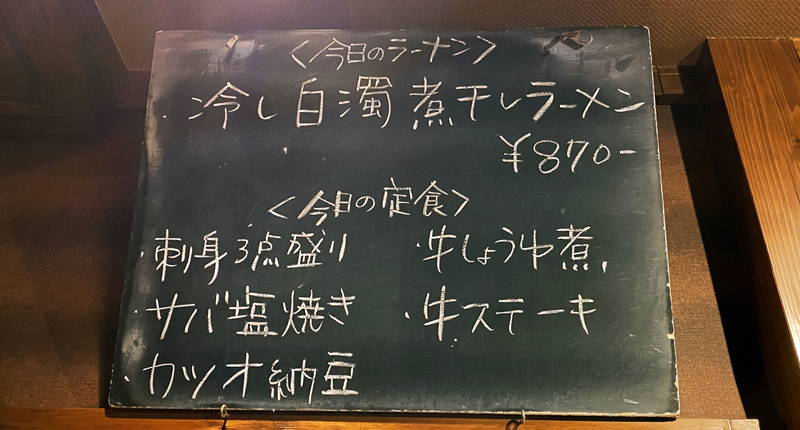 <今日のラーメン>
・冷し白濁煮干しラーメン
¥870-
<今日の定食>
・刺身3点盛り
・牛しょうゆ煮
・サバ塩焼き
・牛ステーキ
・カツオ納豆